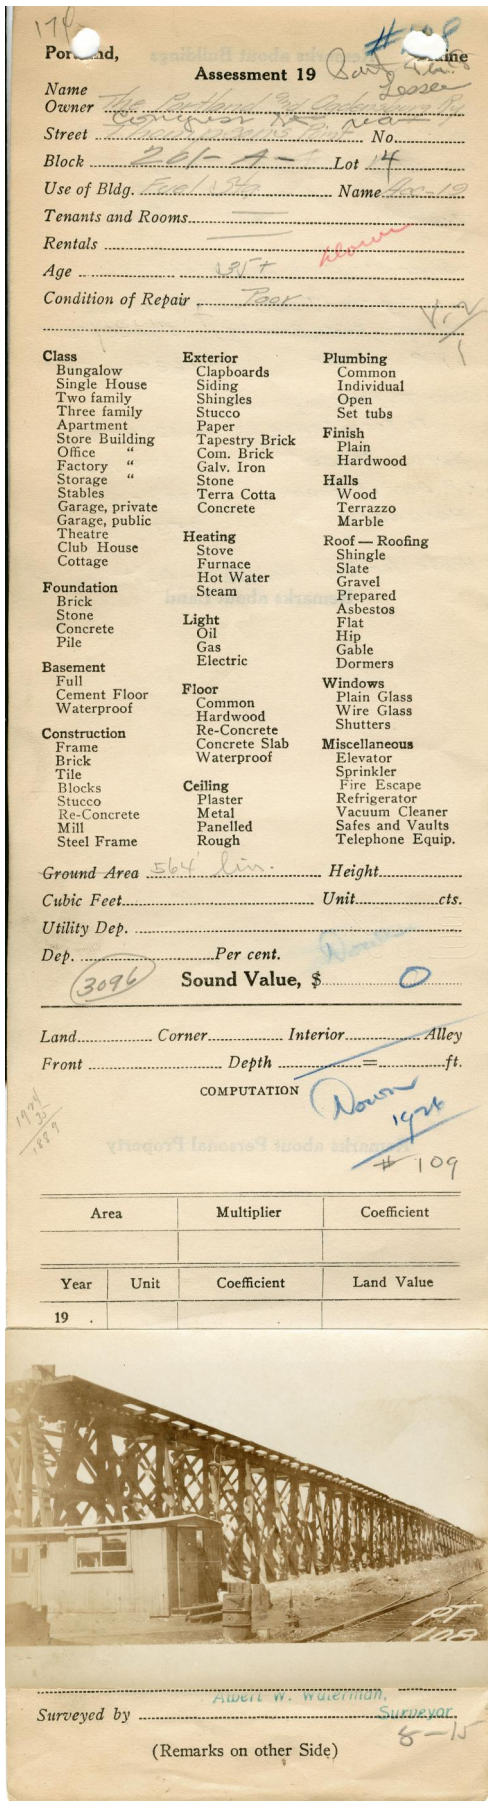 174
Portland, Maine
Assessment 19
Lessee
Name
Owner The Portland and Ogdensburg Ry
Congress St. rear
Street Thompson's Point No.
Block 261-A- Lot 4
Use of Bldg. Fuel Sta. Name
Tenants and Rooms
Rentals
Down
Age 35+
Condition of Repair Poor
Class
Bungalow
Single House
Two family
Three family
Apartment
Store Building
Office "
Factory "
Storage "
Stables
Garage, private
Garage, public
Theatre
Club House
Cottage
Foundation
Brick
Stone
Concrete
Pile
Basement
Full
Cement Floor
Waterproof
Construction
Frame
Brick
Tile
Blocks
Stucco
Re-Concrete
Mill
Steel Frame
Exterior
Clapboards
Siding
Shingles
Stucco
Paper
Tapestry Brick
Com. Brick
Galv. Iron
Stone
Terra Cotta
Concrete
Heating
Stove
Furnace
Hot Water
Steam
Light
Oil
Gas
Electric
Floor
Common
Hardwood
Re-Concrete
Concrete Slab
Waterproof
Ceiling
Plaster
Metal
Panelled
Rough
Plumbing
Common
Individual
Open
Set tubs
Finish
Plain
Hardwood
Halls
Wood
Terrazzo
Marble
Roof — Roofing
Shingle
Slate
Gravel
Prepared
Asbestos
Flat
Hip
Gable
Dormers
Windows
Plain Glass
Wire Glass
Shutters
Miscellaneous
Elevator
Sprinkler
Fire Escape
Refrigerator
Vacuum Cleaner
Safes and Vaults
Telephone Equip.
Ground Area 564' lin. Height
Cubic Feet Unit cts.
Utility Dep.
Dep. Per cent.
3096
Sound Value, $ 0
Land Corner Interior Alley
Front Depth = ft.
COMPUTATION
Down
1926
1924
35
1889
# 109
Area Multiplier Coefficient
Year Unit Coefficient Land Value
19 .
PT
108
Albert W. Waterman,
Surveyed by Surveyor
8-15
(Remarks on other Side)